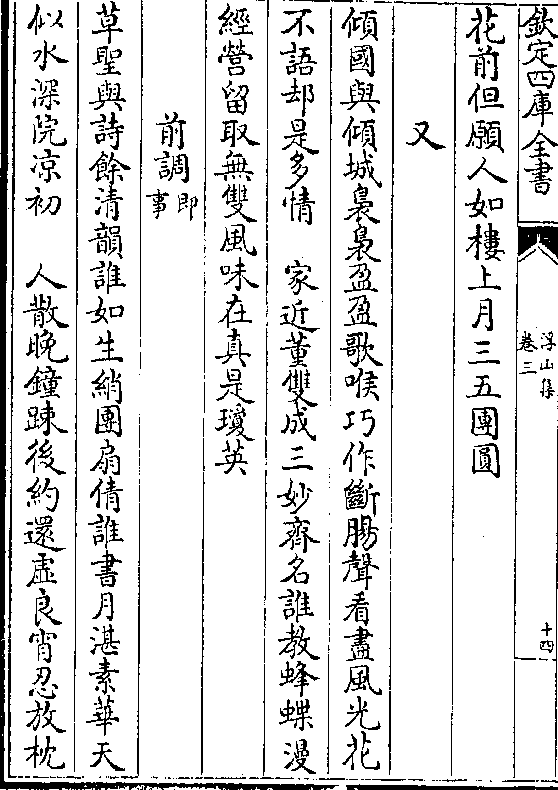 欽定四庫全書
浮山集
卷三
十四
花前但願人如樓上月三五團圓
又
傾國與傾城裊裊盈盈歌喉巧作斷腸聲看盡風光花
不語却是多情　家近董雙成三妙齊名誰教蜂蝶漫
經營留取無雙風味在真是瓊英
前調即事
草聖與詩餘清韻誰如生綃團扇倩誰書月湛素華天
似水深院凉初　人散晚鐘踈後約還虛良宵忍放枕